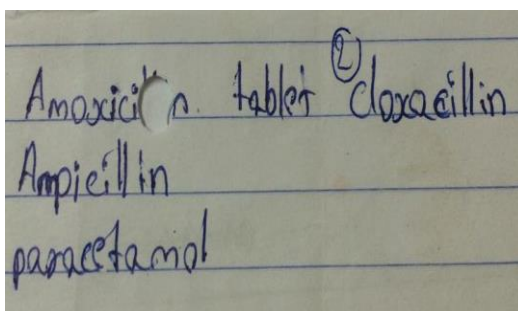 Amoxicillin tablet ② cloxacillin
Ampicillin
paracetamol